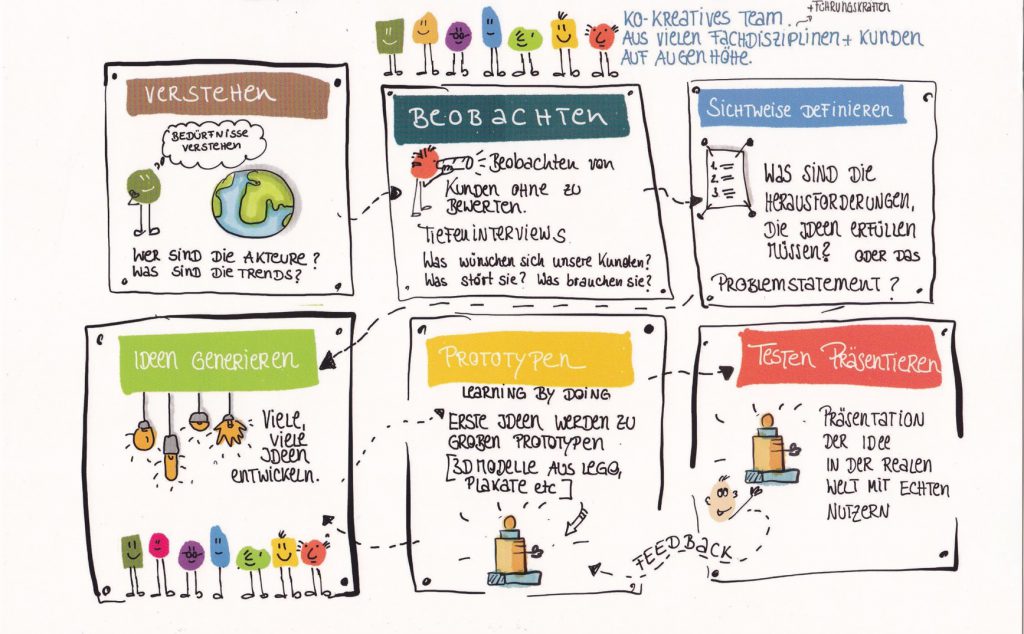 + FÜHRUNGSKRÄFTEN
KO-KREATIVES TEAM.
AUS VIELEN FACHDISZIPLINEN + KUNDEN
AUF AUGENHÖHE.
VERSTEHEN
BEDÜRFNISSE
VERSTEHEN
WER SIND DIE AKTEURE?
WAS SIND DIE TRENDS?
BEOBACHTEN
Beobachten von
Kunden ohne zu
Bewerten.
Tiefeninterviews
Was wünschen sich unsere Kunden?
Was stört sie? Was brauchen sie?
SICHTWEISE DEFINIEREN
1.
2.
3
WAS SIND DIE
HERAUSFORDERUNGEN,
DIE IDEEN ERFÜLLEN
MÜSSEN? ODER DAS
PROBLEMSTATEMENT?
IDEEN GENERIEREN
VIELE,
VIELE
IDEEN
ENTWICKELN.
PROTOTYPEN
LEARNING BY DOING
ERSTE IDEEN WERDEN ZU
GROBEN PROTOTYPEN
[3D MODELLE AUS LEGO,
PLAKATE etc]
TESTEN PRÄSENTIEREN
PRÄSENTATION
DER IDEE
IN DER REALEN
WELT MIT ECHTEN
NUTZERN
FEEDBACK